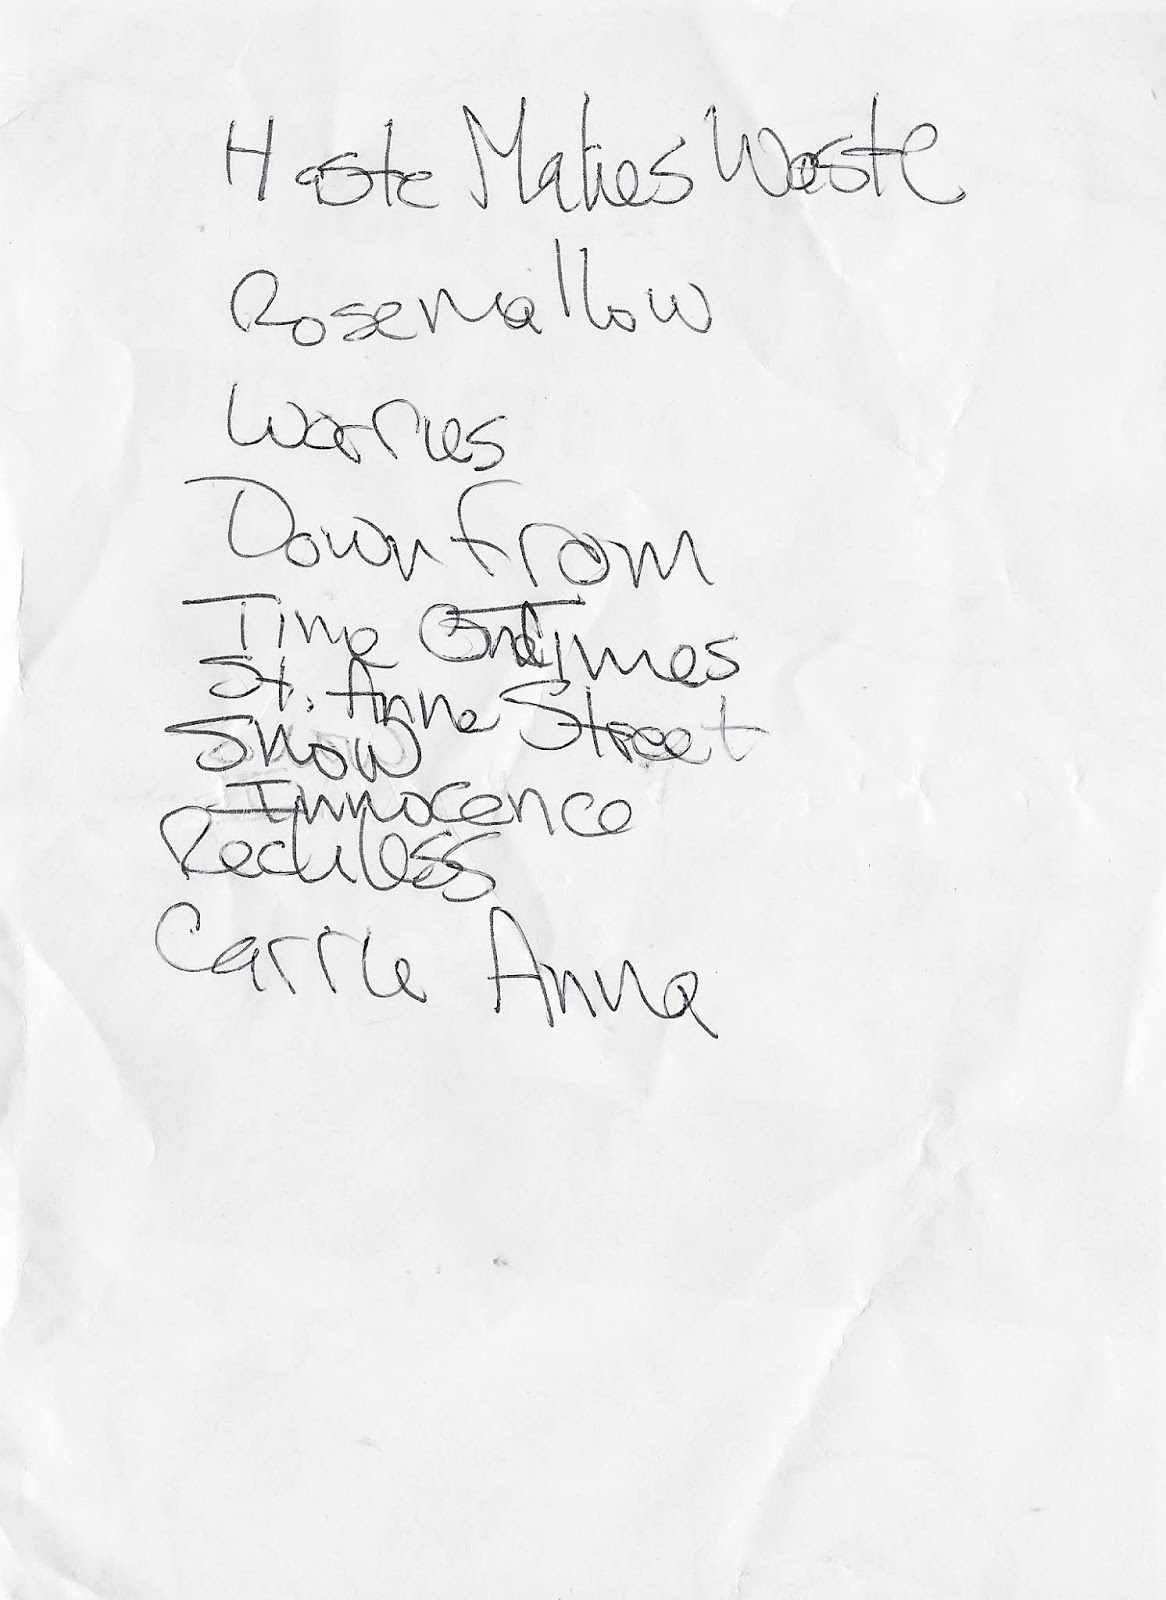 Haste Makes Waste
Rosemallow
Worries
Down from
Time and Times
St. Anne Street
Snow
Innocence
Reckless
Carrie Anna